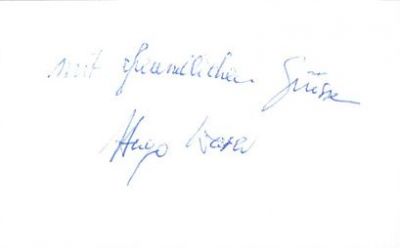 mit freundlichen Grüssen
Hugo